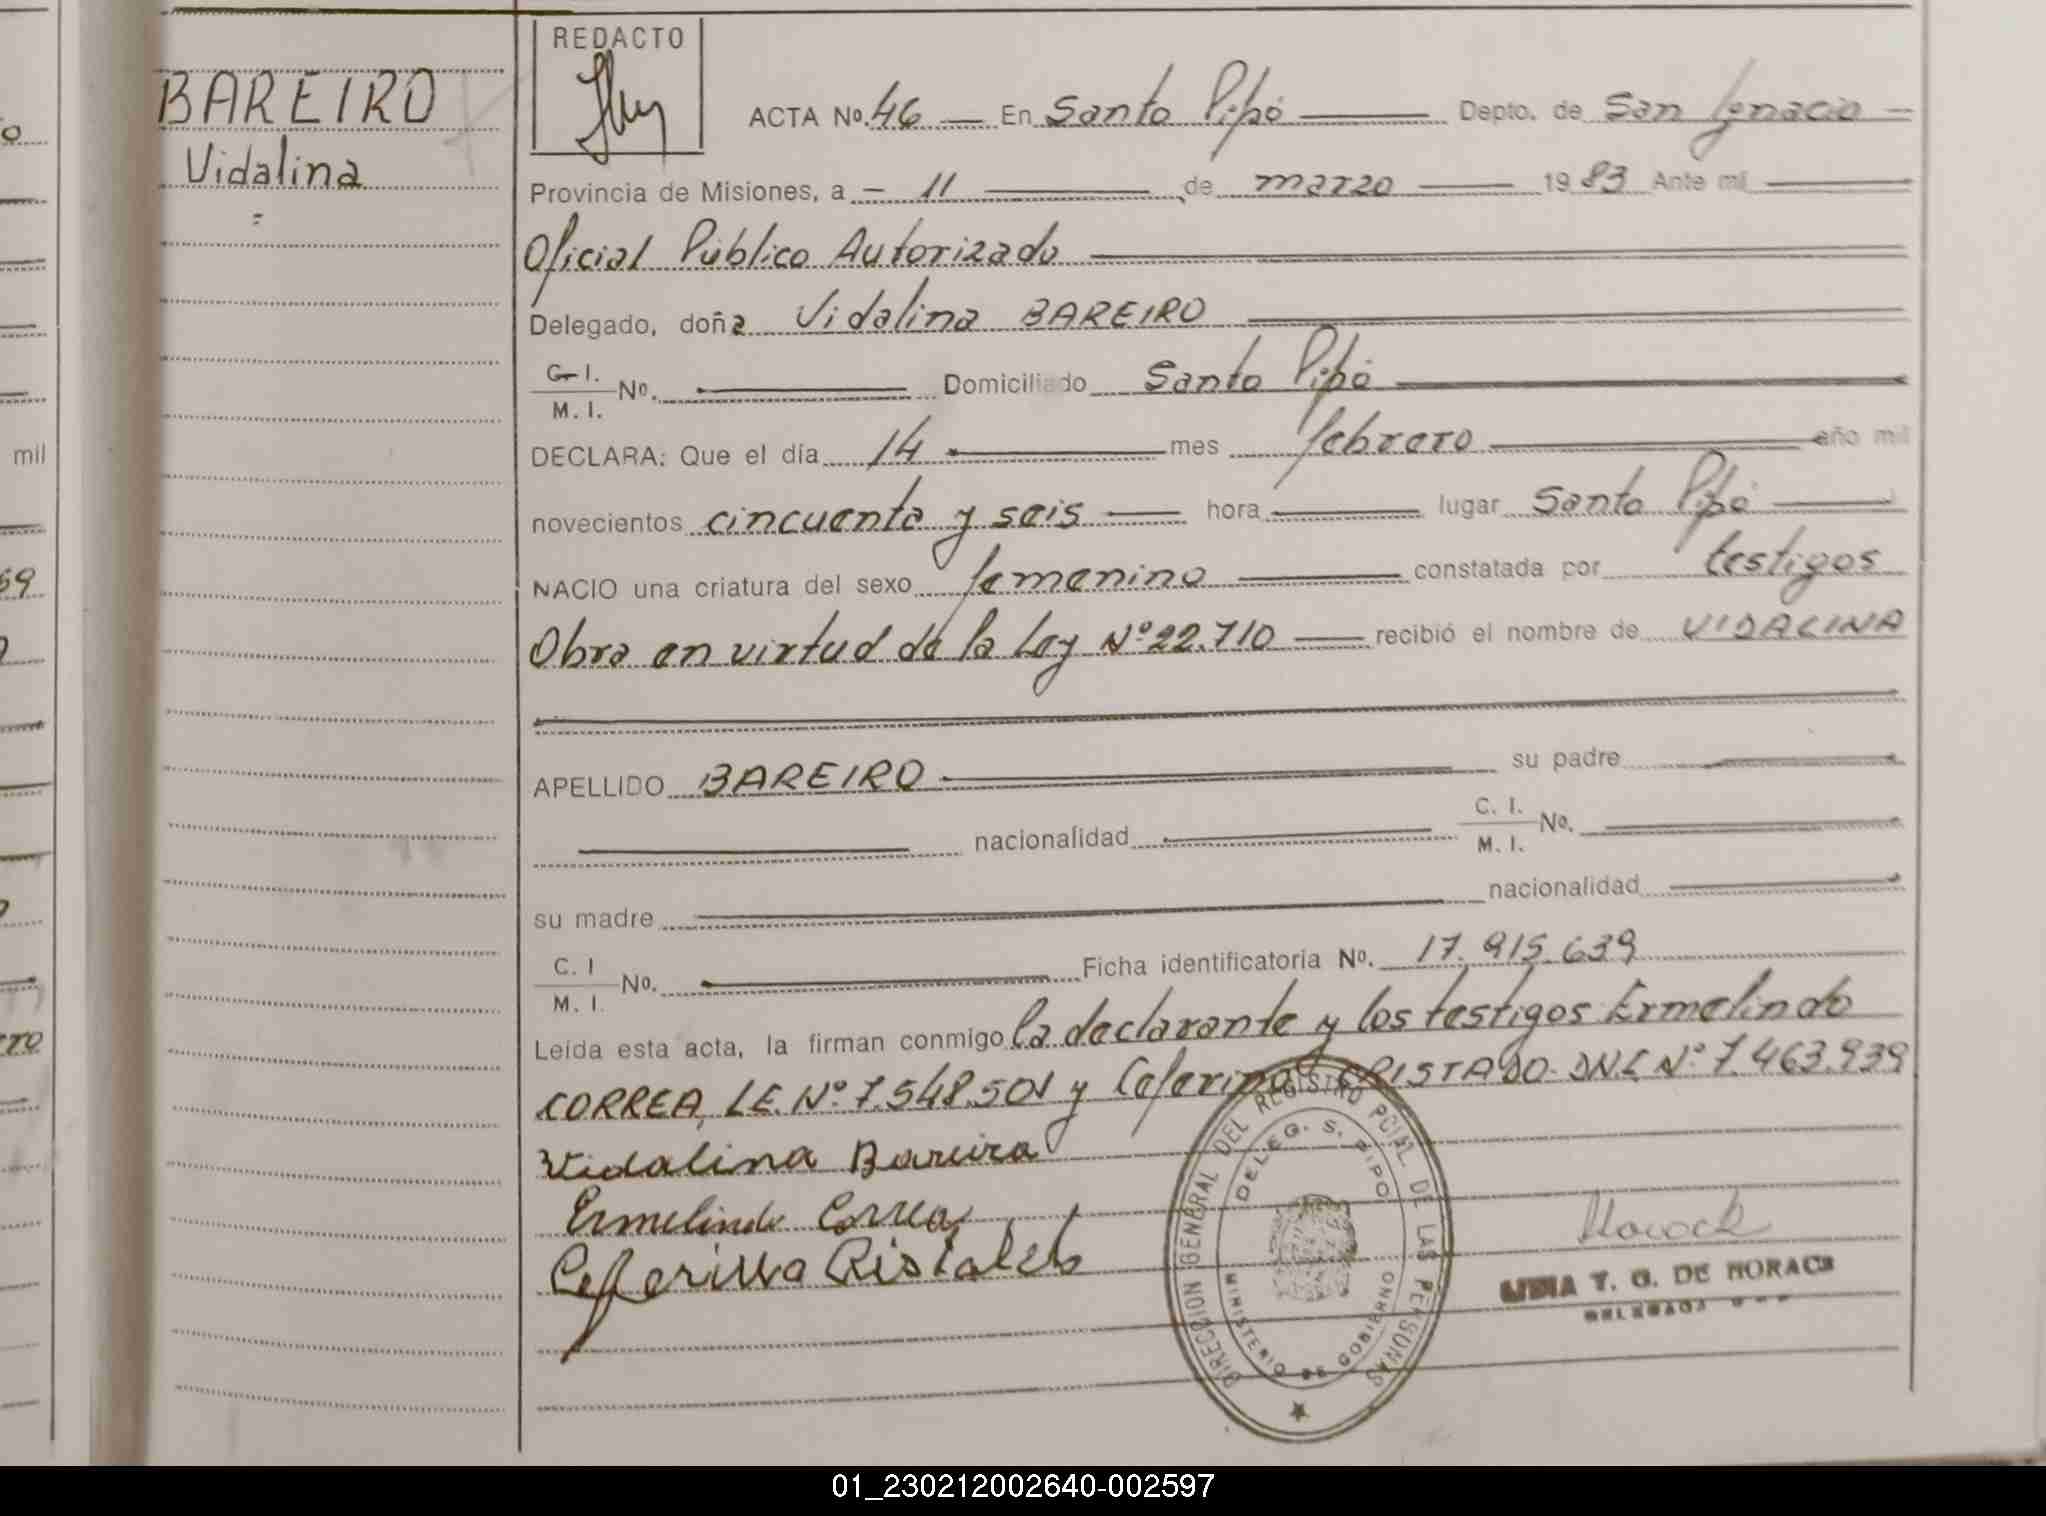 BAREIRO
Vidalina
=
REDACTO
ACTA No. 46 — En Santo Pipó — Depto. de San Ignacio —
Provincia de Misiones, a — 11 — de marzo — 1983 Ante mí —
Oficial Público Autorizado —
Delegado, doña Vidalina BAREIRO —
C. I.
M. I. No. — Domiciliado Santo Pipó —
DECLARA: Que el día 14 — mes febrero — año mil
novecientos cincuenta y seis — hora — lugar Santo Pipó —
NACIO una criatura del sexo femenino — constatada por testigos
Obra en virtud de la Ley Nº 22.710 — recibió el nombre de VIDALINA
APELLIDO BAREIRO — su padre —
— nacionalidad — C. I.
M. I. No. —
su madre — nacionalidad —
C. I
M. I. No. — Ficha identificatoria No. 17.915.639
Leída esta acta, la firman conmigo la declarante y los testigos Ermelindo
CORREA, L.E. Nº 7.548.501 y Ceferino CRISTADO D.N.I. Nº 7.463.939
Vidalina Bareiro
Ermelindo Correa
DIRECCION GENERAL DEL REGISTRO PCIAL. DE LAS PERSONAS
DELEG. S. PIPO
MINISTERIO DE GOBIERNO
T. G. DE
mil
59
01_230212002640-002597